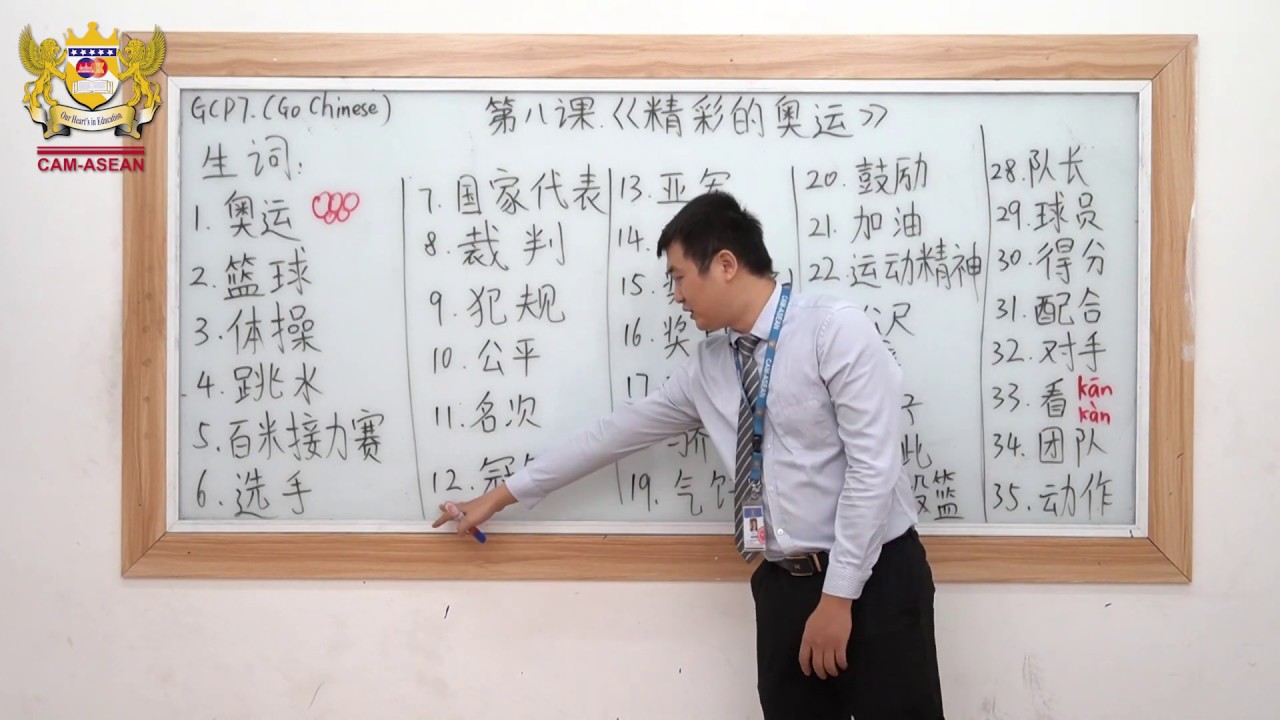 Our Heart's in Education
CAM-ASEAN
GCP7. (Go Chinese)
第八课.《精彩的奥运》
生词:
1. 奥运
2. 篮球
3. 体操
4. 跳水
5. 百米接力赛
6. 选手
7. 国家代表
8. 裁判
9. 犯规
10. 公平
11. 名次
12. 冠
13. 亚军
14.
15.
16. 奖
17.
19. 气
20. 鼓励
21. 加油
22. 运动精神
尺
此
篮
28. 队长
29. 球员
30. 得分
31. 配合
32. 对手
33. 看 kān kàn
34. 团队
35. 动作
CAM-ASEAN